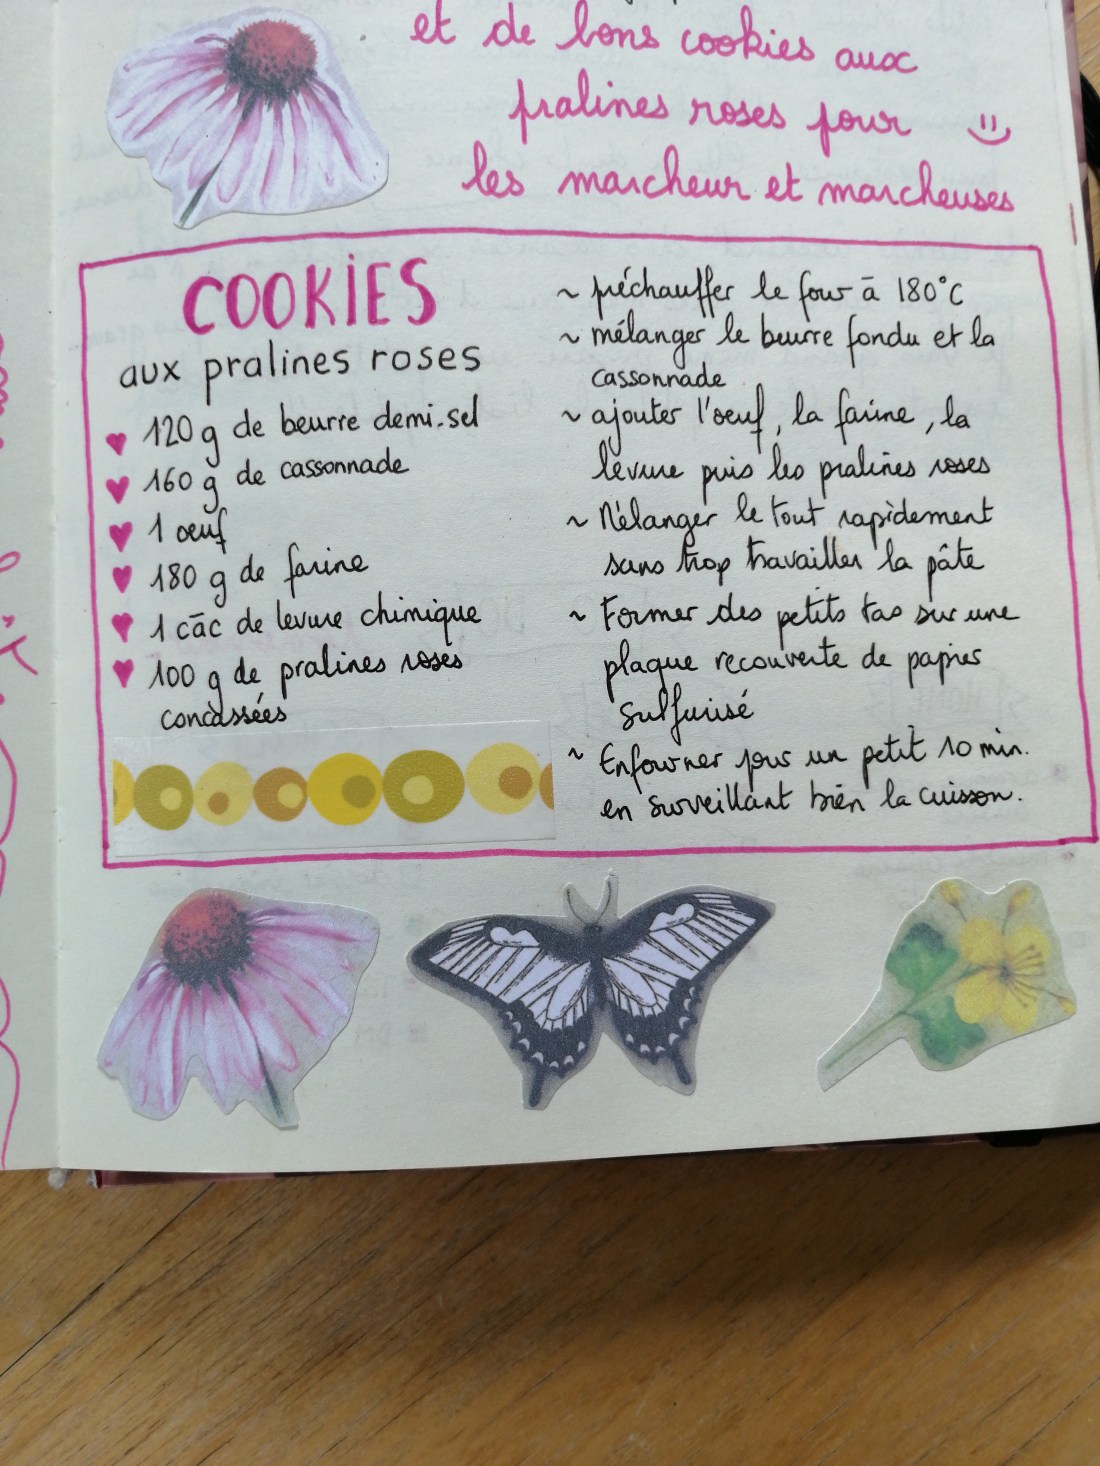 et de bons cookies aux
pralines roses pour
les marcheur et marcheuses
COOKIES
aux pralines roses
120 g de beurre demi-sel
160 g de cassonnade
1 oeuf
180 g de farine
1 càc de levure chimique
100 g de pralines roses
concassées
~ préchauffer le four à 180°C
~ mélanger le beurre fondu et la
cassonnade
~ ajouter l'oeuf, la farine, la
levure puis les pralines roses
~ Mélanger le tout rapidement
sans trop travailler la pâte
~ Former des petits tas sur une
plaque recouverte de papier
sulfurisé
~ Enfourner pour un petit 10 min.
en surveillant bien la cuisson.